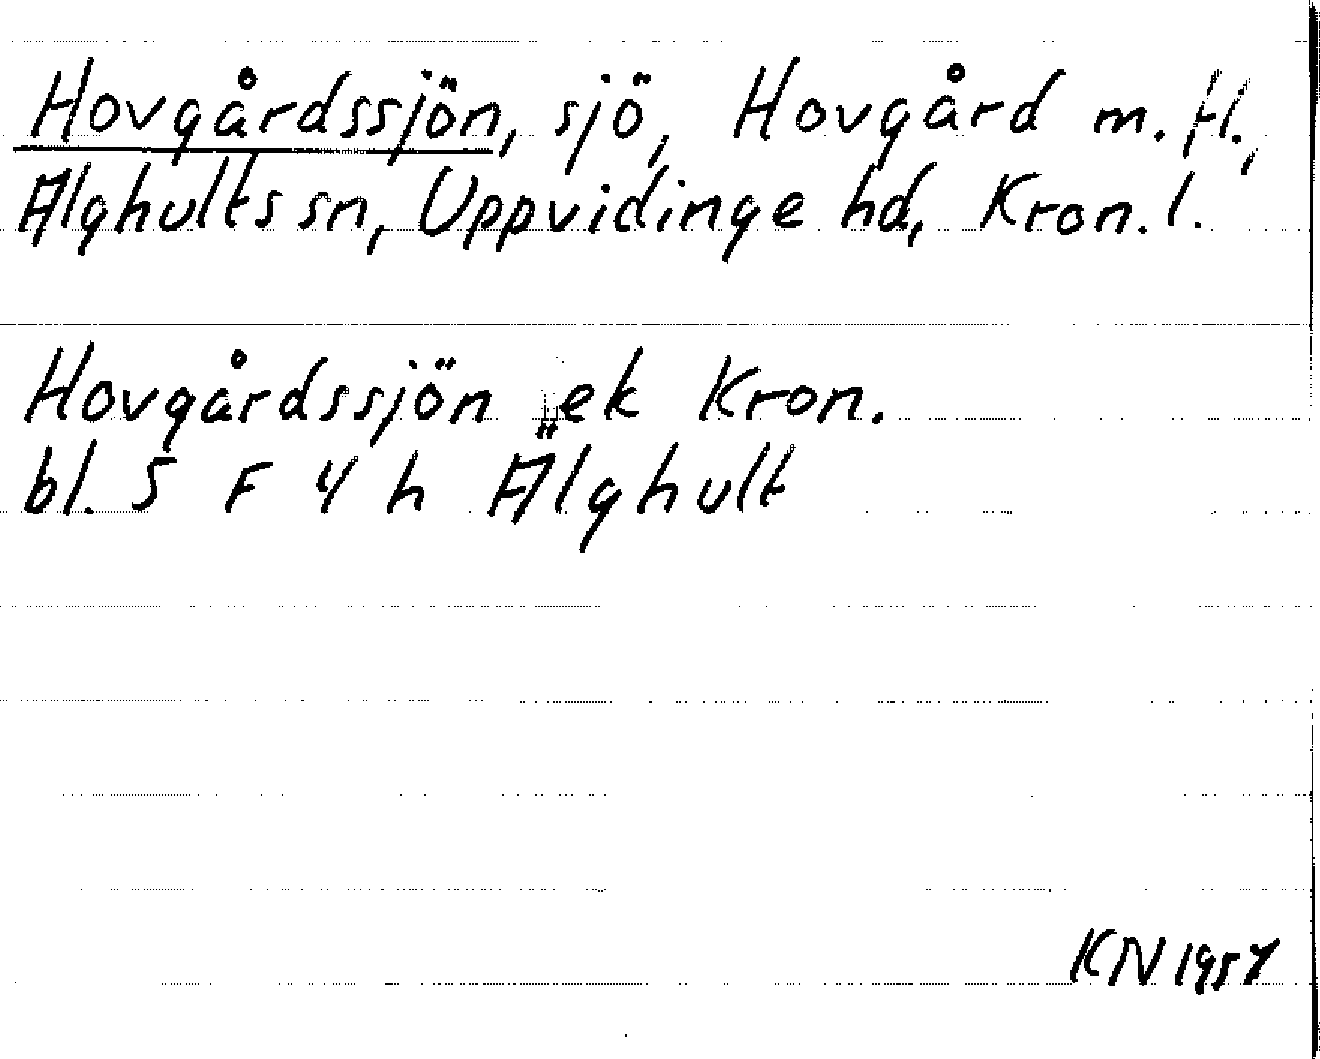 Hovgårdssjön, sjö, Hovgård m. fl.,
Älghults sn, Uppvidinge hd, Kron. l.
Hovgårdssjön ek Kron.
bl. 5 F 4 h Älghult
KN 1957